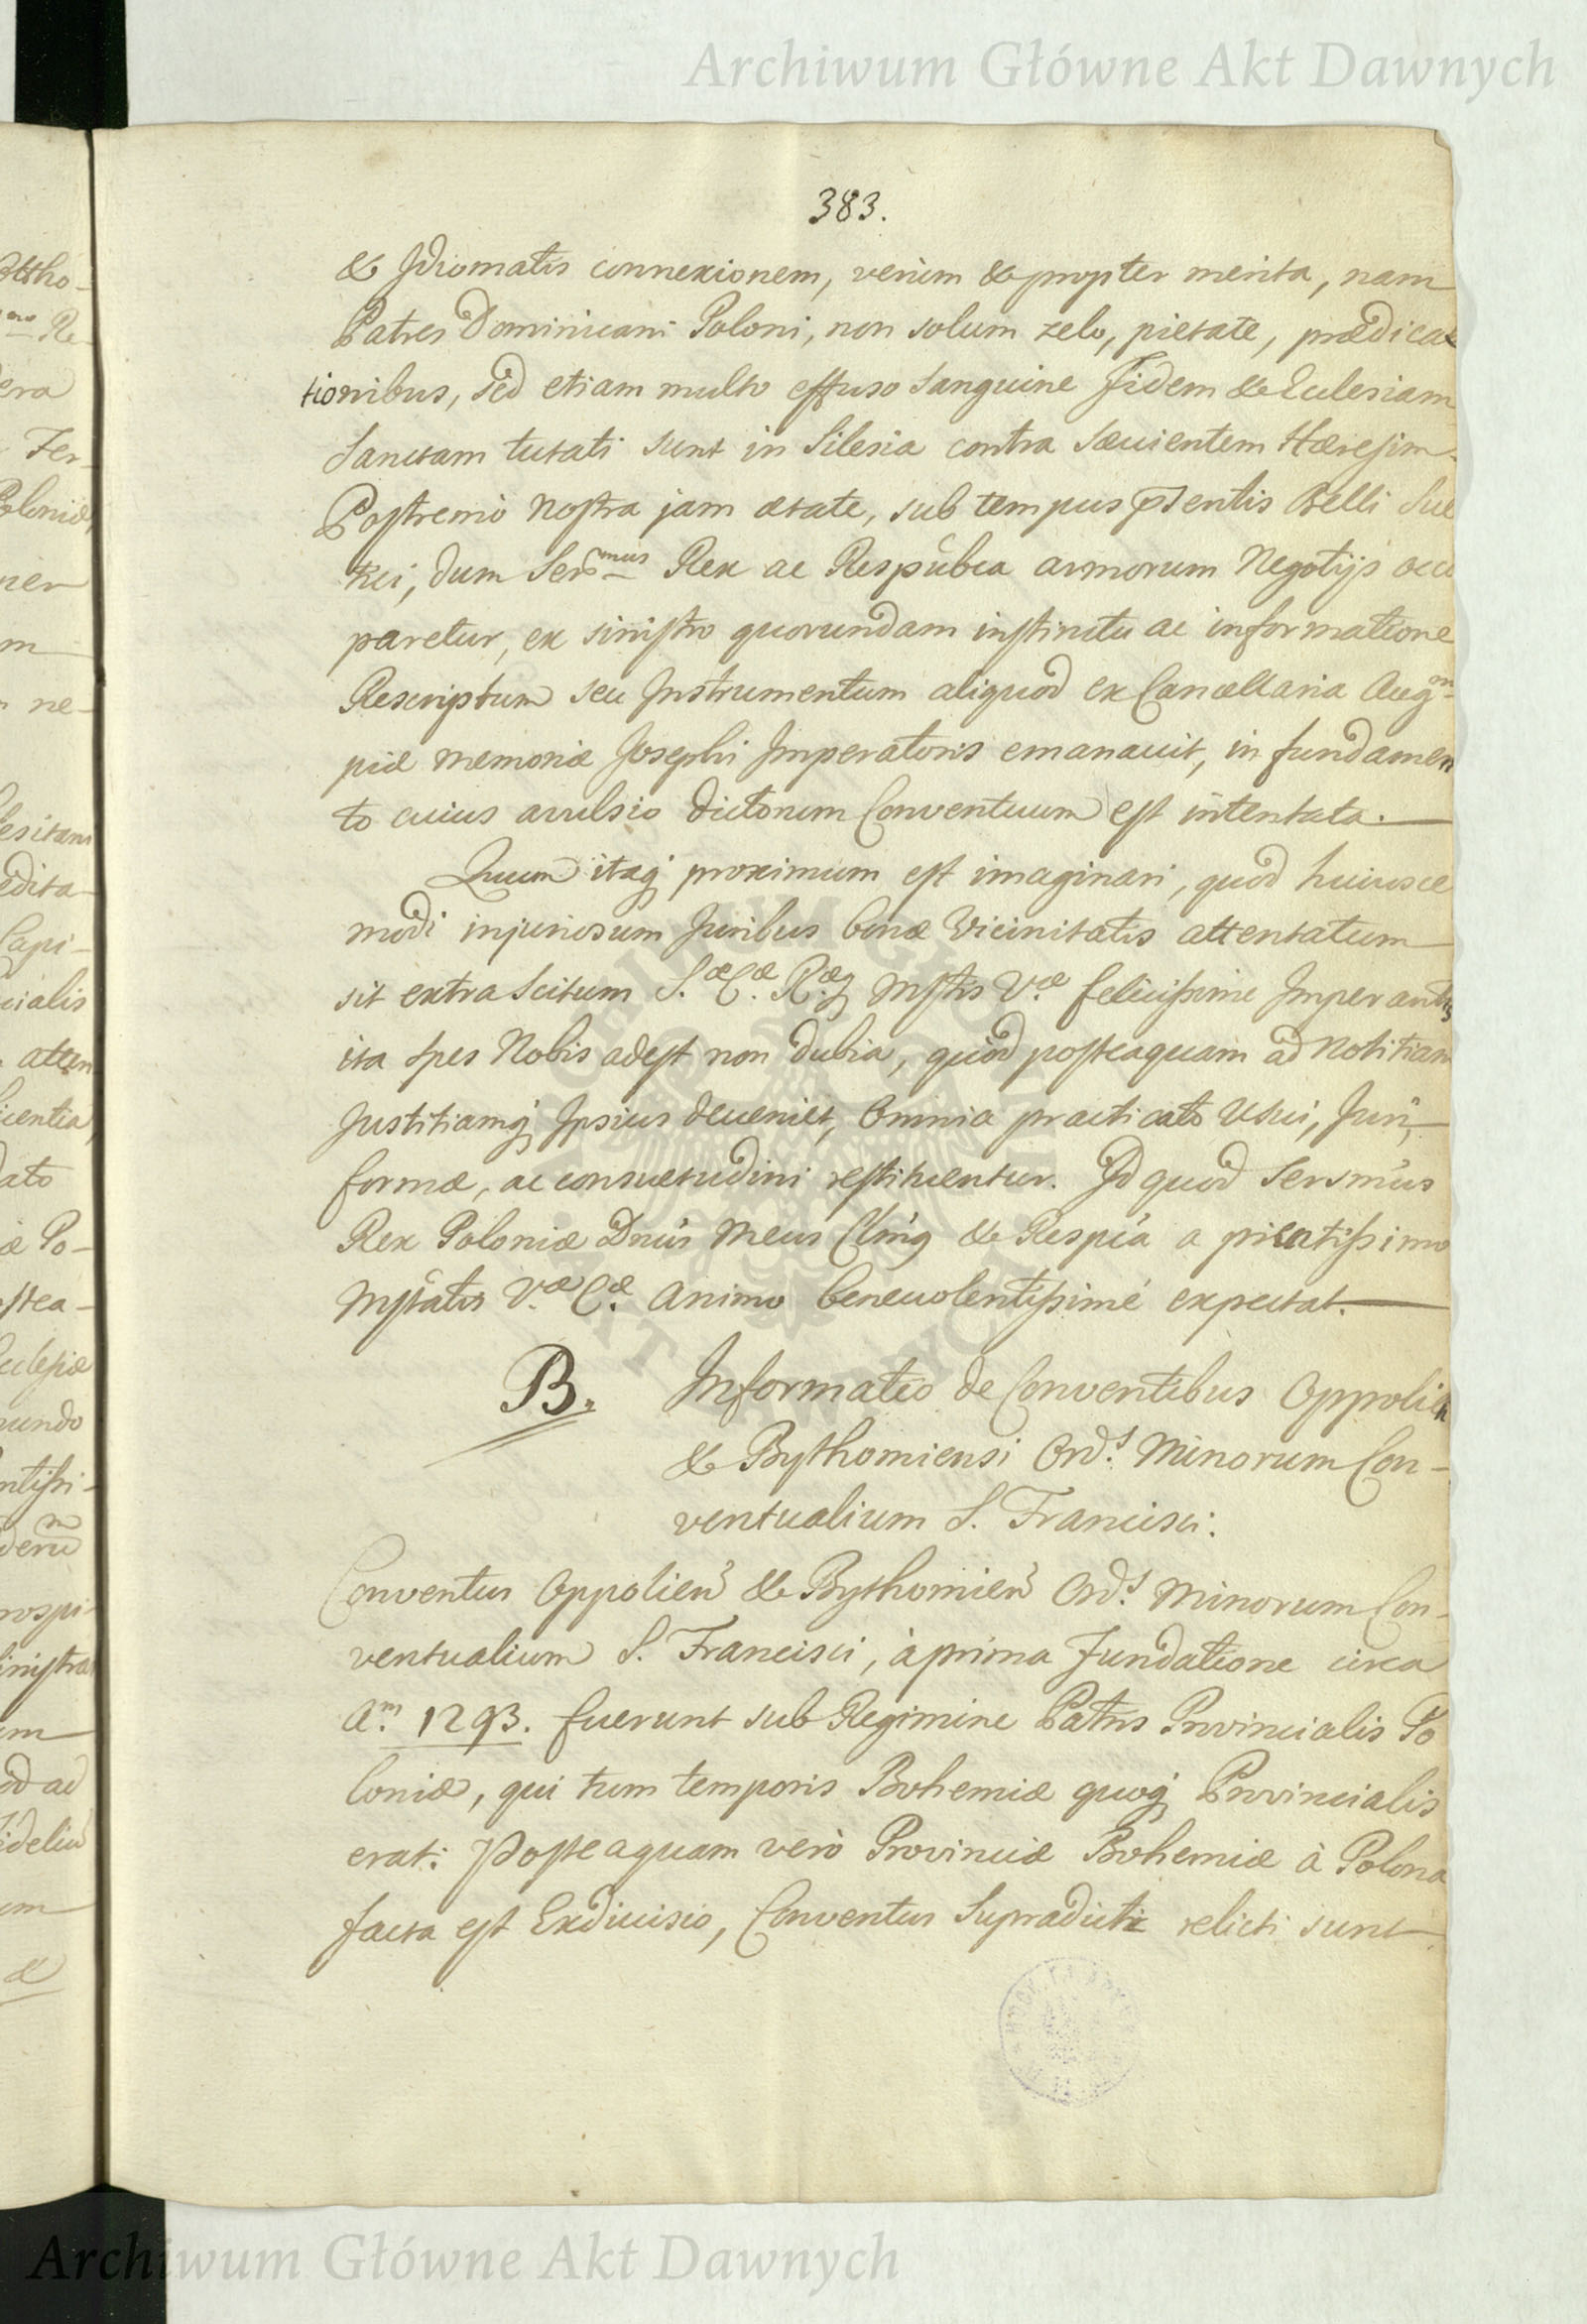 Archiwum Główne Akt Dawnych
383.
& Idiomatis connexionem, verùm & propter merita, nam
Patres Dominicani Poloni, non solum zelo, pietate, prædica
tionibus, sed etiam multo effuso sanguine Fidem & Eclesiam
Sanctam tutati sunt in Silesia contra sævientem Hæresim.
Postremò nostra jam ætate, sub tempus pñsentis Belli Sue
tici, dum Serõmus Rex ac Respubca armorum Negotijs occu
paretur, ex sinistro quorundam instinctu ac informatione
Rescriptum seu Instrumentum aliquod ex Cancellaria Augm
piæ memoriæ Josephi Imperatoris emanavit, in fundamen
to cuius avulsio dictorum Conventuum est intentata.
Quum itaq proximum est imaginari, quod huiusce
modi injuriosum Juribus bonæ Vicinitatis attentatum
sit extra Scitum S.æ C.æ R.æq Mstis V.æ felicissime Imperantis
ita spes Nobis adest non dubia, quod posteaquam ad Notitiam
Justitiamq Ipsius deveniet, omnia practicato Usui, Juri,
formæ, ac consuetudini restituentur. Id quod Sersmus
Rex Poloniæ Dnus Meus Clmg & Respca a pientissimo
Mstatis V.æ C.æ animo benevolentissimè expectat.
B. Informatio de Conventibus Oppolien
& Bythomiensi Ord.s Minorum Con-
ventualium S. Francisci.
Conventus Oppolien & Bythomien Ord.s Minorum Con-
ventualium S. Francisci, à prima Fundatione circa
A.m 1293. fuerunt sub Regimine Patris Provincialis Po
loniæ, qui tum temporis Bohemiæ quoq Provincialis
erat: Posteaquam verò Provinciæ Bohemiæ à Polona
facta est Exdivisio, Conventus Supradicti relicti sunt
Archiwum Główne Akt Dawnych